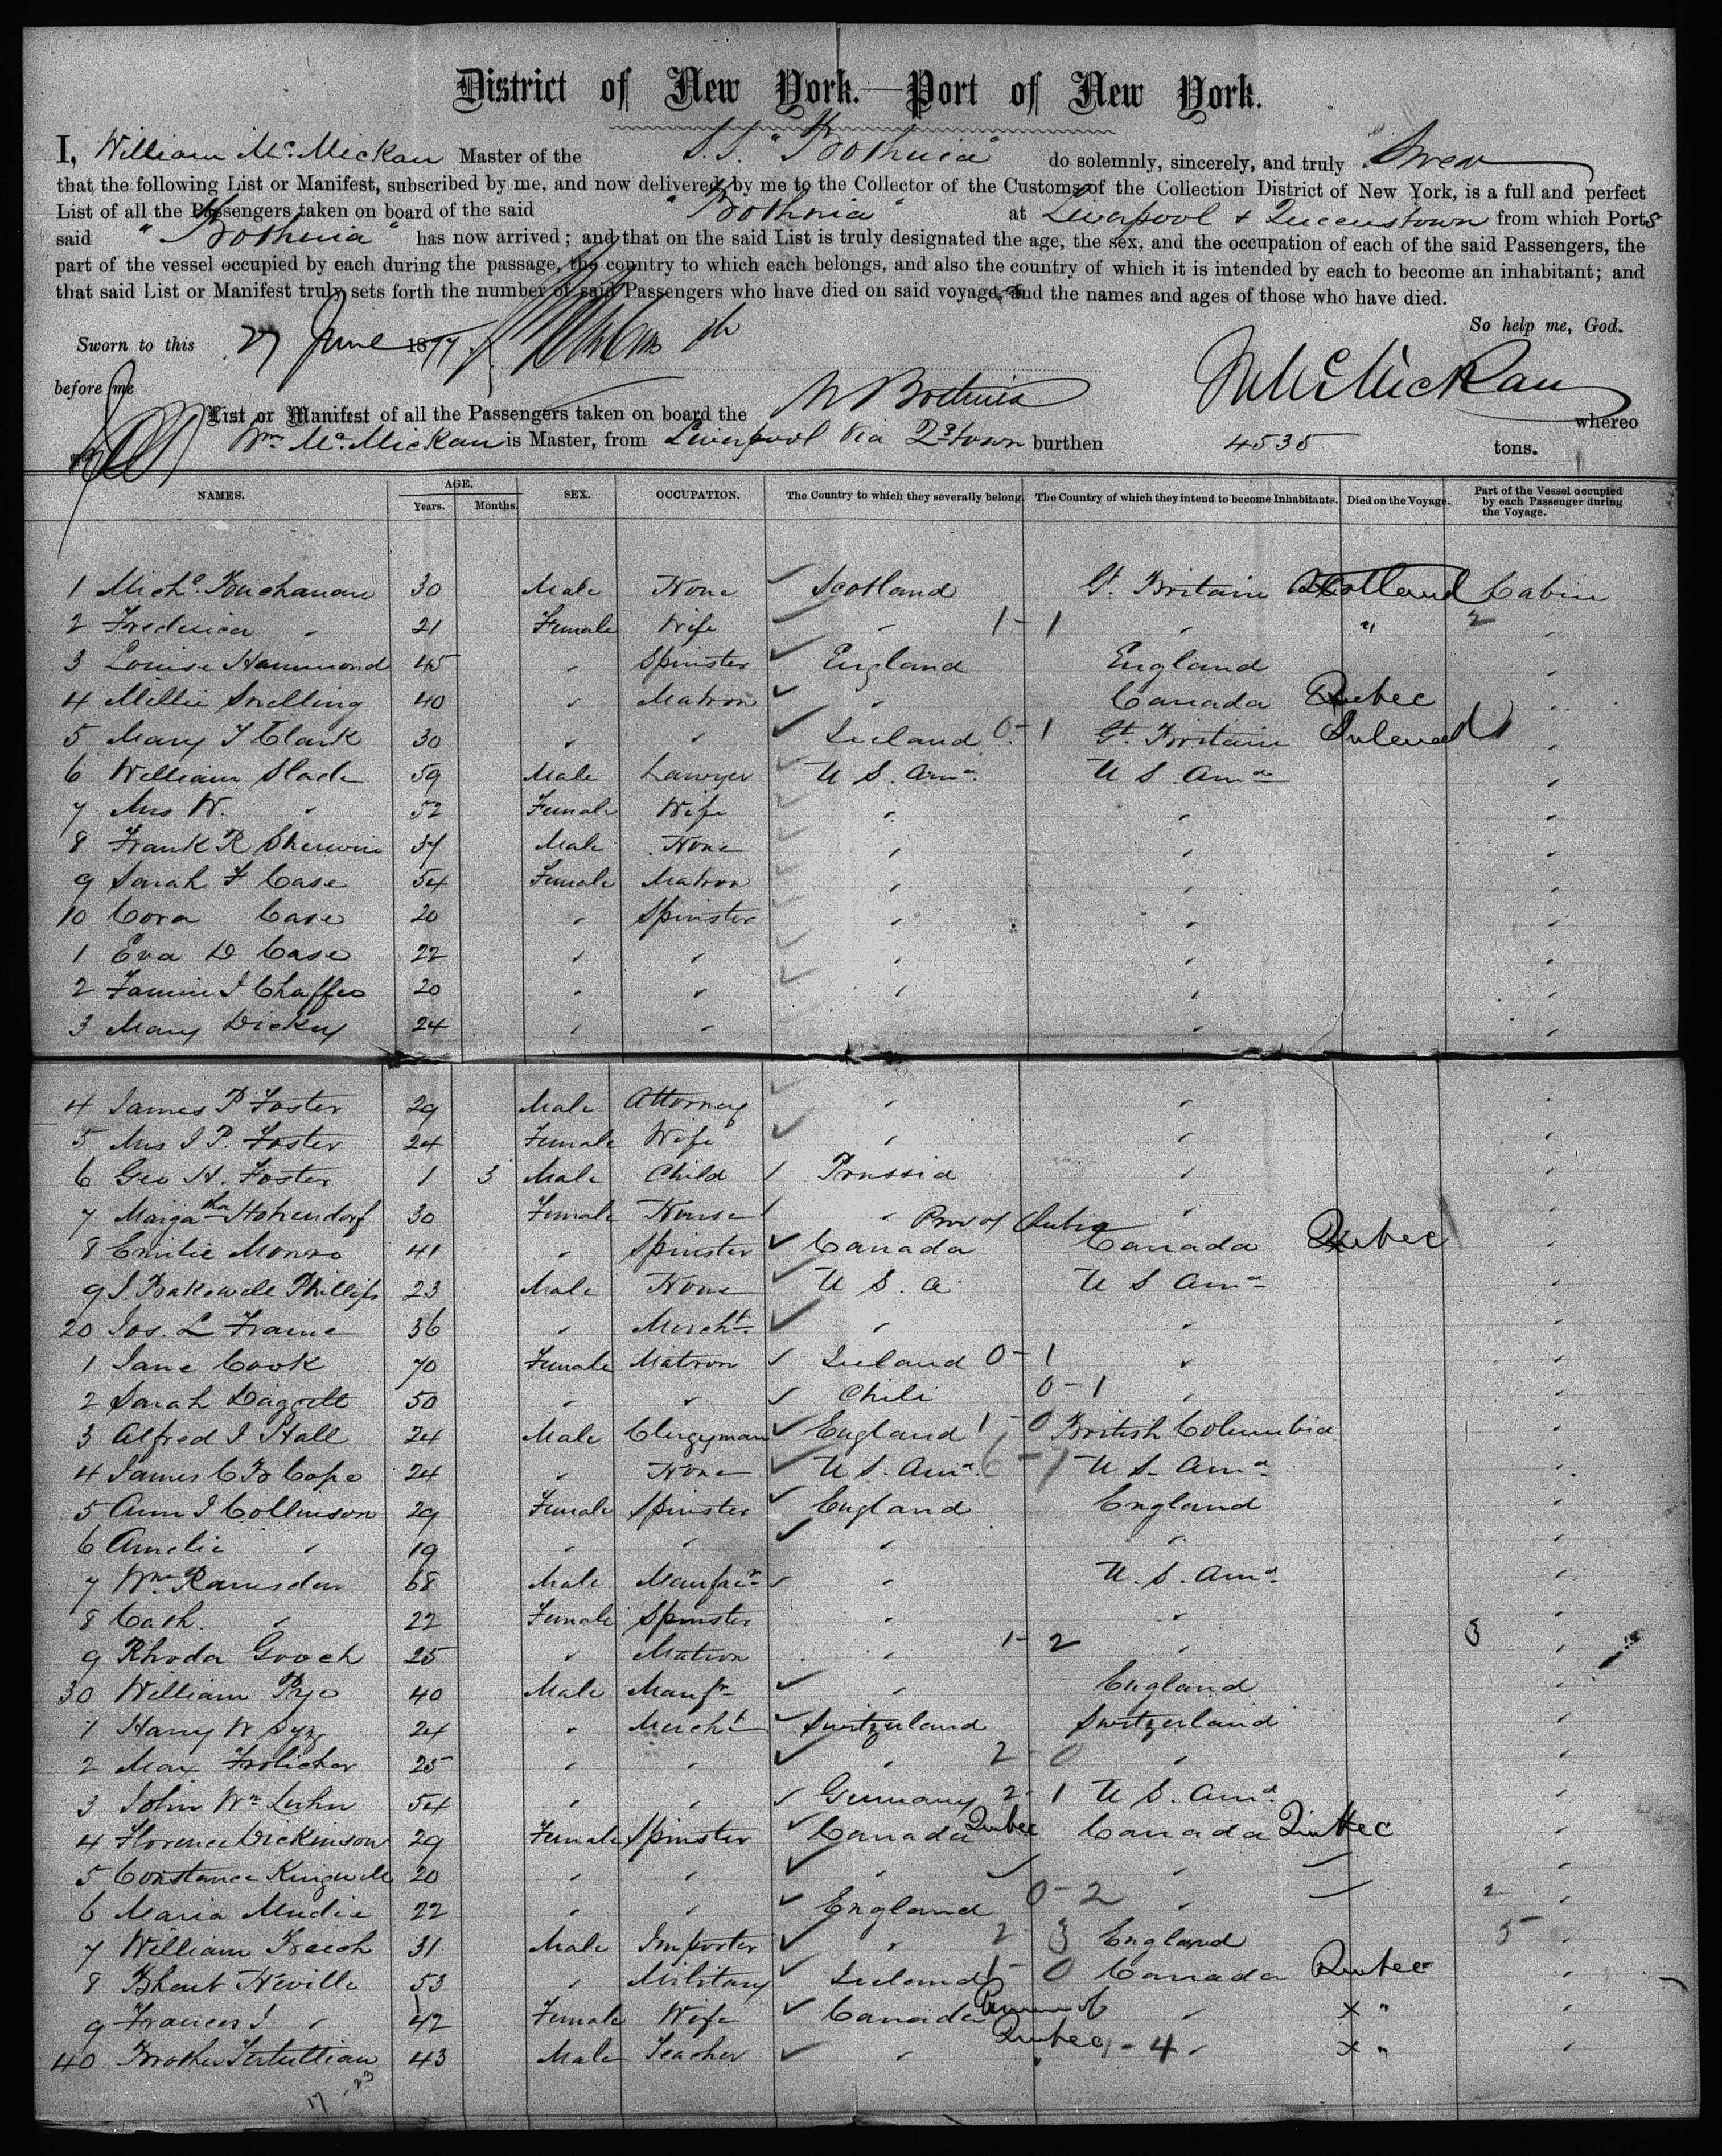 District of New York.—Port of New York.
I, William McMickan Master of the S.S. "Bothnia" do solemnly, sincerely, and truly Swear
that the following List or Manifest, subscribed by me, and now delivered by me to the Collector of the Customs of the Collection District of New York, is a full and perfect
List of all the Passengers taken on board of the said "Bothnia" at Liverpool & Queenstown from which Ports
said "Bothnia" has now arrived; and that on the said List is truly designated the age, the sex, and the occupation of each of the said Passengers, the
part of the vessel occupied by each during the passage, the country to which each belongs, and also the country of which it is intended by each to become an inhabitant; and
that said List or Manifest truly sets forth the number of said Passengers who have died on said voyage, and the names and ages of those who have died.
So help me, God.
Sworn to this 27 June 1877
before me
WMcMickan
List or Manifest of all the Passengers taken on board the Bothnia whereo
Wm McMickan is Master, from Liverpool Via Qstown burthen 4535 tons.
NAMES. AGE. Years. Months. SEX. OCCUPATION. The Country to which they severally belong. The Country of which they intend to become Inhabitants. Died on the Voyage. Part of the Vessel occupied by each Passenger during the Voyage.
1 Micho Buchanan 30 Male None Scotland Gt. Britain Scotland Cabin
2 Frederica " 21 Female Wife " 1-1 " " 2 "
3 Louise Hammond 45 " Spinster England England "
4 Millie Snelling 40 " Matron " Canada Quebec "
5 Mary Clark 30 " " Ireland 0-1 Gt. Britain Ireland "
6 William Slade 59 Male Lawyer U S. Ama U S. Ama "
7 Mrs W. " 52 Female Wife " " "
8 Frank R Sherwin 37 Male None " " "
9 Sarah F Case 54 Female Matron " " "
10 Cora Case 20 " Spinster " " "
1 Eva D Case 22 " " " " "
2 Fannie J Chaffee 20 " " " " "
3 Mary Dickey 24 " " " "
4 James P Foster 29 Male Attorney " " "
5 Mrs J P. Foster 24 Female Wife " " "
6 Geo H. Foster 1 3 Male Child Prussia " "
7 Margatha Hohendorf 30 Female Nurse " " "
8 Emilie Monro 41 " Spinster Canada Prov of Quebec Canada Quebec "
9 J. Bakewell Phillips 23 Male None U S. A U S Ama "
20 Jos. L Frame 36 " Mercht. " " "
1 Jane Cook 70 Female Matron Ireland 0-1 " "
2 Sarah Daggett 50 " " Chili 0-1 " "
3 Alfred J Hall 24 Male Clergyman England 1-0 British Columbia "
4 James C B Cope 24 " None U S. Ama 6-7 U S. Ama "
5 Ann J Collinson 29 Female Spinster England England "
6 Amelie " 19 " " " " "
7 Wm Ramsden 68 Male Manfacr " U. S. Ama "
8 Cath. " 22 Female Spinster " " "
9 Rhoda Gooch 25 " Matron " 1-2 " 3 "
30 William Pyo 40 Male Manfr " England "
1 Harry W Syz 24 " Mercht Switzerland Switzerland "
2 Max Frolicher 25 " " " 2-0 " "
3 John Wm Luhn 54 " " Germany 2-1 U S. Ama "
4 Florence Dickinson 29 Female Spinster Canada Quebec Canada Quebec "
5 Constance Kingwell 20 " " " " "
6 Maria Mudie 22 " " England 0-2 " 2 "
7 William 31 Male Importer " 2-3 England 5 "
8 Neville 53 " Military Ireland 1-0 Canada Quebec "
9 Frances J " 42 Female Wife Canada Province of " x " "
40 Brother Tertullian 43 Male Teacher " Quebec 1-4 " x " "
17 23